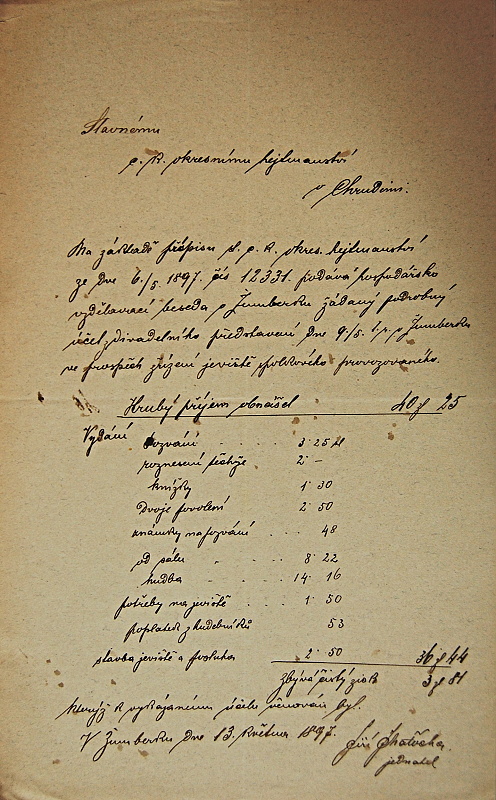 Slavnému
c. k. okresnímu hejtmanství
v Chrudimi.
Na základě přípisu sl. c. k. okres. hejtmanství
ze dne 6./5 1897. čís 12331. podává hospodářsko
vzdělávací beseda v Žumberku žádaný podrobný
účet z divadelního představení dne 9/5. t. r. v Žumberku
ve prospěch zřízení jeviště spolkového provozovaného.
Hrubý příjem obnášel 40 zl 25
Vydání pozvání 3 25
roznesení těchže 2 –
knížky 1 30
Dvoje povolení 2 50
známky na pozvání 48
od sálu 8 22
hudba 14 16
potřeby na jeviště 1 50
poplatek z hudebníků 53
stavba jeviště a posluha 2 50 36 zl 44
Zbývá čistý zisk 3 zl 81
kterýž k vykázanému účelu věnován byl.
V Žumberku dne 13. května 1897.
Jiří
jednatel